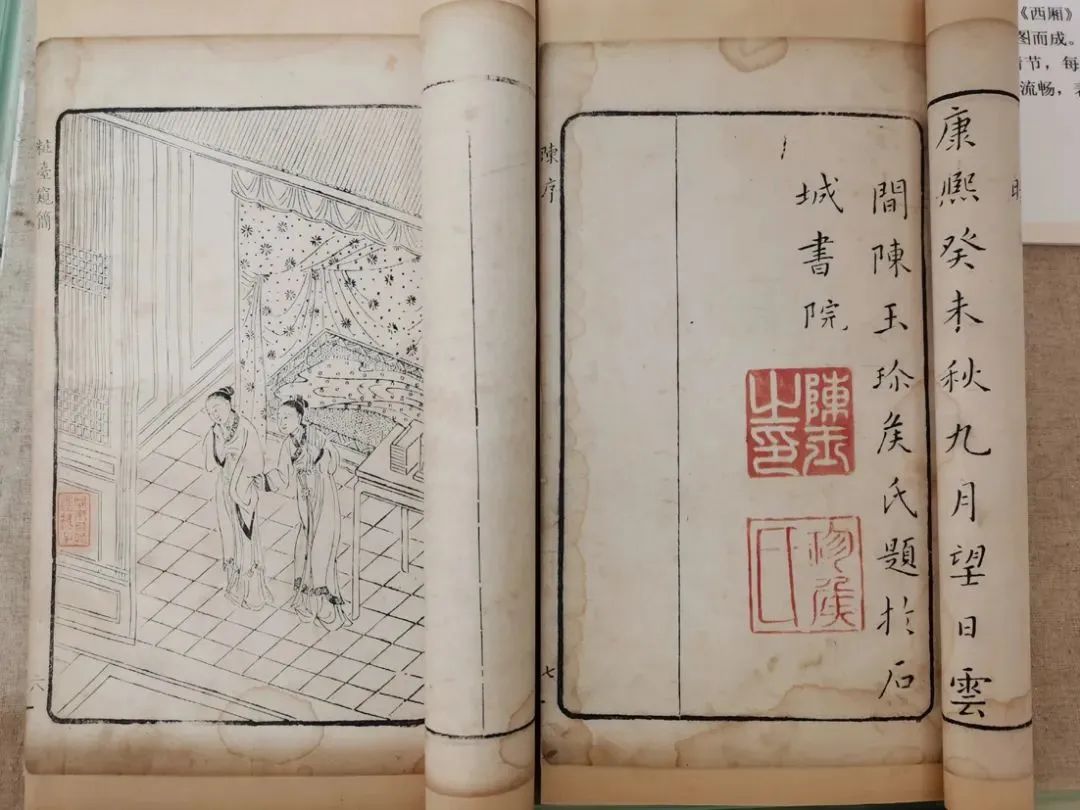 《西厢》
图而成。
节，每
流畅，
康熙癸未秋九月望日雲
間陳玉珎矦氏題於石
城書院
陳玉之印
珎矦氏
陳序
七
粧臺窺簡
六